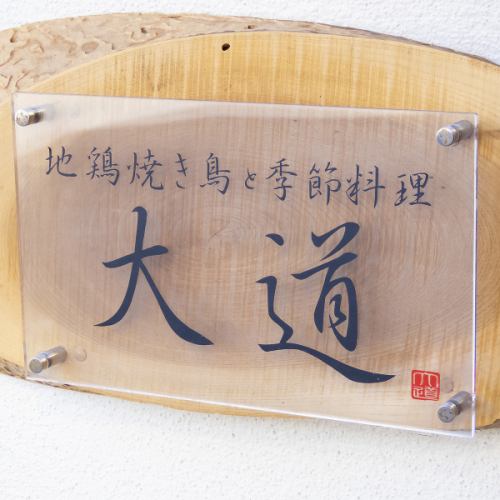 地鶏焼き鳥と季節料理
大道
大道